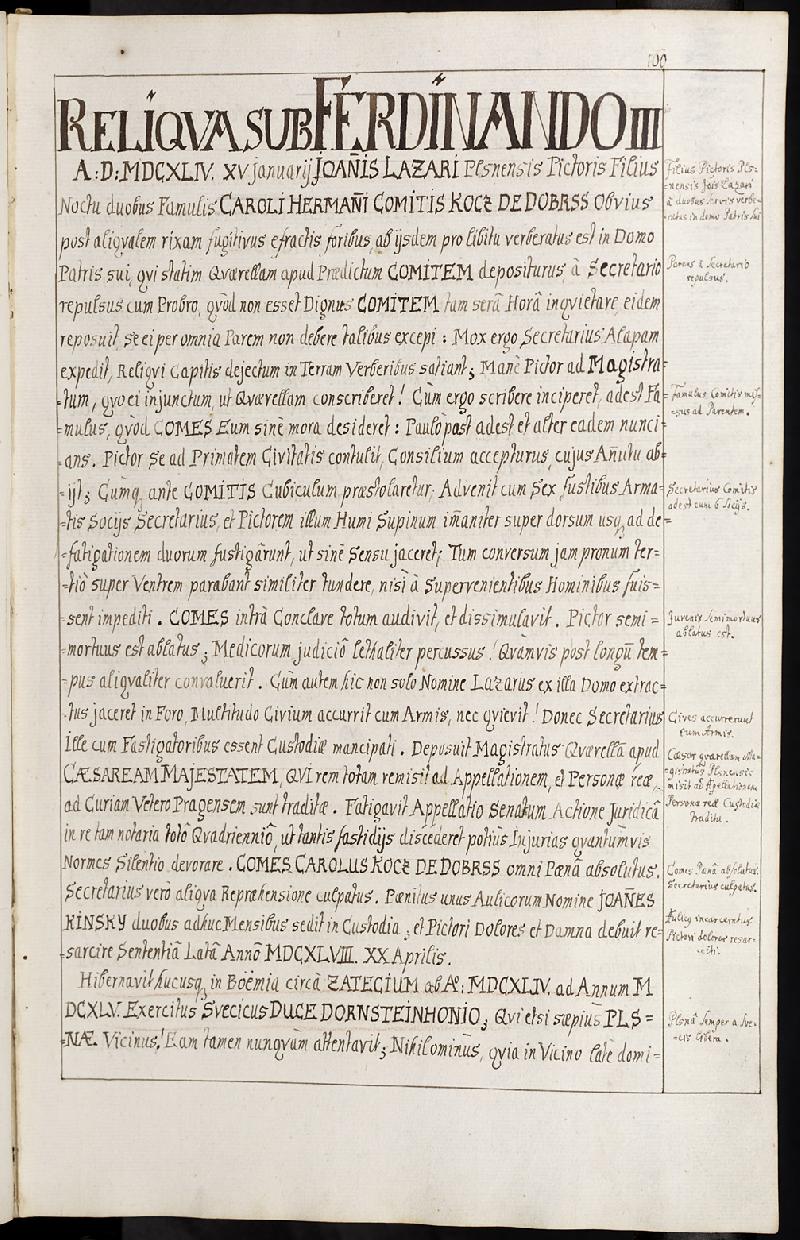 100
RELIQVA SUB FERDINANDO III
A: D: MDCXLIV. XV Januarij JOAÑIS LAZARI Plsnensis Pictoris Filius
Noctu duobus Famulis CAROLI HERMAÑI COMITIS KOCZ DE DOBRSS Obvius
post aliqvalem rixam fugitivus efractis foribus ab ijsdem pro libitu verberatus est in Domo
Patris sui, qvi statim Qværellam apud Prædictum COMITEM depositurus, à Secretario
repulsus cum Probro, qvòd non esset Dignus COMITEM tam serâ Horâ inqvietare, eidem
reposuit, se ei per omnia Parem non debere talibus excepi: Mox ergo Secretarius Alapam
expedit, Reliqvi Capitis dejectum in Terram Verberibus satiant; Manè Pictor ad Magistra=
=tum, qvo ei injunctum, ut Qværellam conscriberet! Cùm ergo scribere inciperet, adest Fa=
=mulus, qvòd COMES Eum sinè mora desideret: Paulò pòst adest et alter eadem nunci=
=ans. Pictor se ad Primatem Civitatis contulit, Consilium accepturus, cujus Añutu ab=
=ijt; Cumq, ante COMITIS Cubiculum præstolaretur, Advenit cum Sex fustibus Arma=
=tis Socijs Secretarius, et Pictorem illum Humi Supinum im̃aniter super dorsum usq, ad de=
=fatigationem duorum fustigârunt, ut sinè Sensu jaceret; Tum conversum jam pronum ter=
=tiò super Ventrem parabant similiter tundere, nisi à Supervenientibus Hominibus fuis=
=sent impediti. COMES intrà Conclave totum audivit, et dissimulavit. Pictor semi=
=mortuus est ablatus; Medicorum judiciô lethaliter percussus! Qvamvis post longũ tem=
=pus aliqvaliter convaluerit. Cùm autem hic non solo Nomine Lazarus ex illa Domo extrac=
=tus jaceret in Foro, Multitudo Civium accurrit cum Armis, nec qvievit! Donec Secretarius
Ille cum Fastigatoribus essent Custodiæ mancipati. Deposuit Magistratus Qværellã apud
CÆSAREAM MAJESTATEM, QVI rem totam remisit ad Appellationem, et Personæ reæ
ad Curiam Vetero Pragensem sunt traditæ. Fatigavit Appellatio Senatum Actione Juridicâ
in re tam notaria totô Qvadrienniô, ut tantis fastidijs discederet potiùs Injurias qvantumvis
Normes Silentio devorare. COMES CAROLUS KOCZ DE DOBRSS omni Pænâ absolutus,
Secretarius verò aliqva Repræhensione culpatus. Pænitus unus Aulicorum Nomine JOAÑES
KINSKY duobus adhuc Mensibus sedit in Custodia, et Pictori Dolores et Damna debuit re=
=sarcire Sententiâ Latâ Annô MDCXLVIII. XX Aprilis.
Hibernavit hucusq, in Boëmia circà ZATECIUM ab Aõ: MDCXLIV. ad Annum M
DCXLV. Exercitus Svecicus DUCE DORNSTEINHONIO; Qvi etsi sæpius PLS=
=NÆ Vicinus! Eam tamen nunqvam attentavit; Nihilominùs, qvia in Vicino latè domi=
Filius Pictoris Pls=
=nensis Jois Lazari
à duobus servis verbe=
=ratus in domo Patris sui
Parens à Secretario
repulsus.
Famulus Comitis mis=
=sus ad Parentem.
Secretarius Comitis
adest cum 6 Socijs.
Juvenis semimortuus
ablatus est.
Cives accurrerunt
cum Armis.
Cæsar qværellam Ma=
=gistratus Plsnensis
misit ad Apellationem
Personæ reæ Custodiæ
traditæ.
Comes Pænâ absolutus.
Secretarius culpatus.
incarceratus
Pictori dolores resar=
Plsna semper a Sve=
=cis libera.